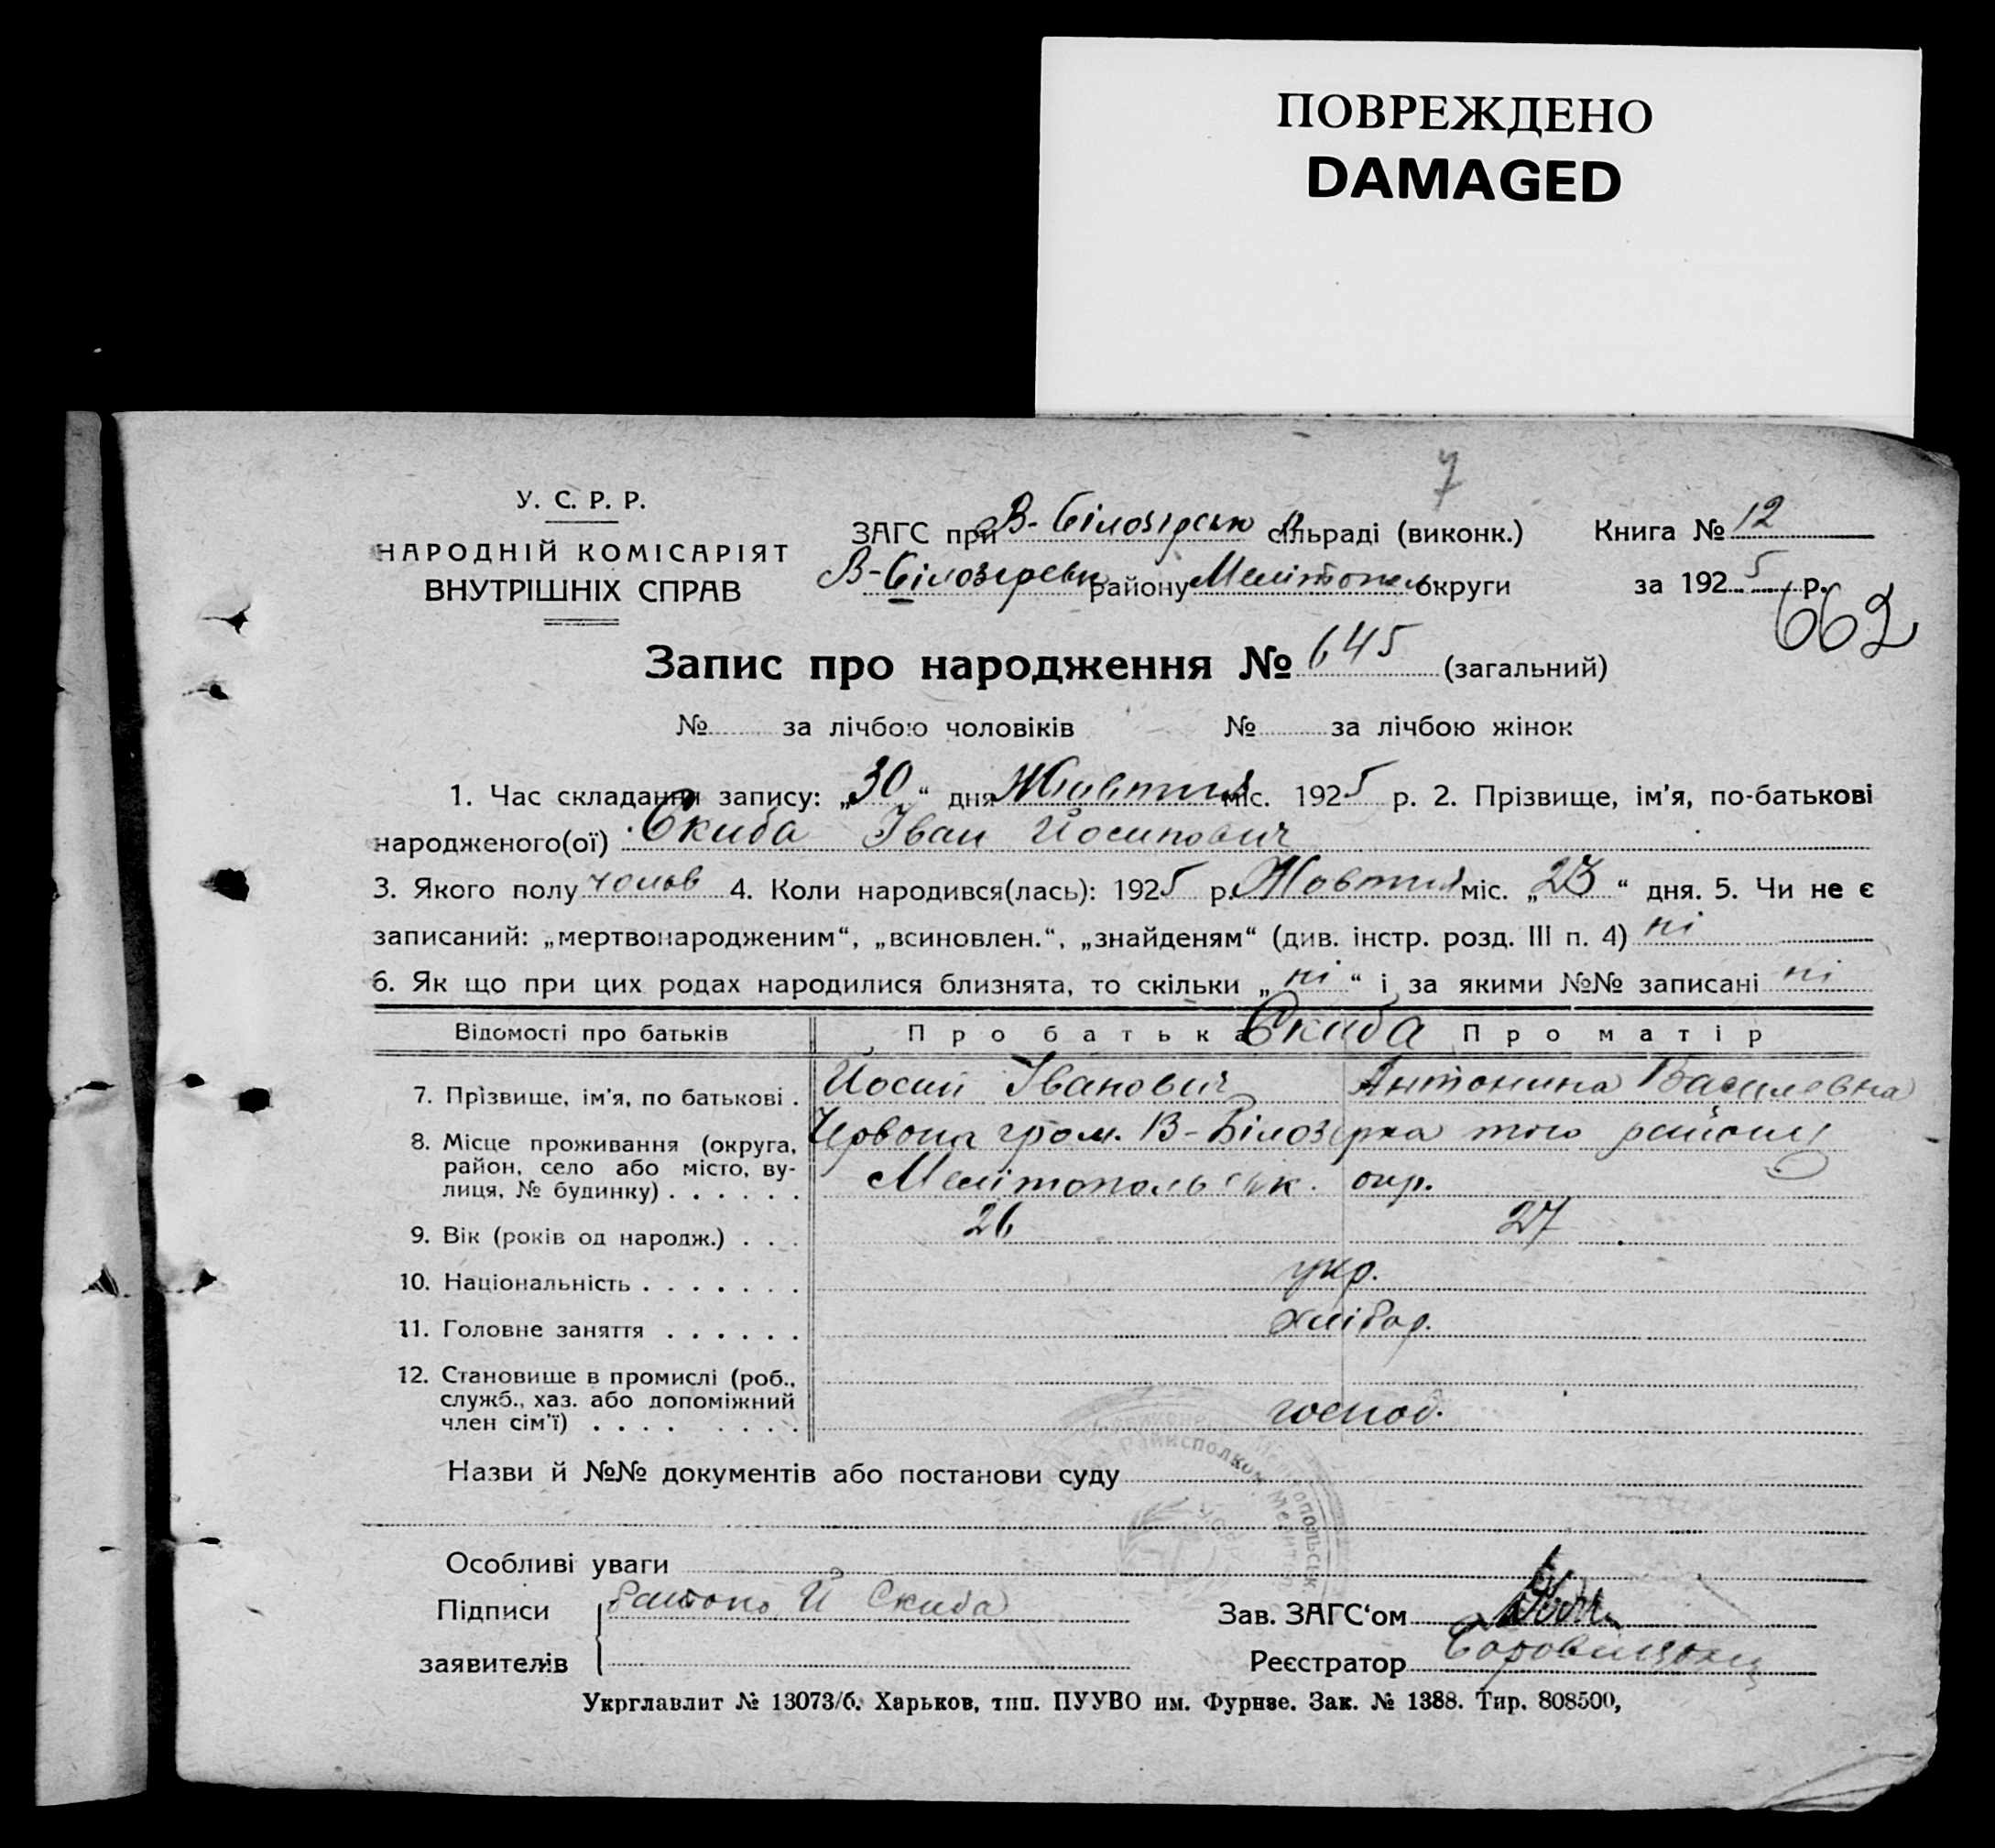 ПОВРЕЖДЕНО
DAMAGED
7
У. С. Р. Р.
НАРОДНІЙ КОМІСАРІЯТ
ВНУТРІШНІХ СПРАВ
ЗАГС при В-Білозірськ сільраді (виконк.)
В-Білозірськ району Мелітопольс округи
Книга № 12
за 1925 р.
662
Запис про народження № 645 (загальний)
№ за лічбою чоловіків № за лічбою жінок
1. Час складання запису: „30“ дня Жовтня міс. 1925 р. 2. Прізвище, ім’я, по-батькові
народженого(ої) Скиба Іван Йосипович
3. Якого полу чолов 4. Коли народився(лась): 1925 р. Жовтня міс. „23“ дня. 5. Чи не є
записаний: „мертвонародженим“, „всиновлен.“, „знайденям“ (див. інстр. розд. III п. 4) ні
6. Як що при цих родах народилися близнята, то скільки „ні“ і за якими №№ записані ні
Відомості про батьків Про батька Скиба Про матір
7. Прізвище, ім’я, по батькові . Йосип Іванович Антонина Василевна
8. Місце проживання (округа, район, село або місто, вулиця, № будинку) . . . . . .
Червона гром. В-Білозірка того району
Мелітопольськ. окр.
9. Вік (років од народж.) . . . 26 27
10. Національність . . . . . . . укр.
11. Головне заняття . . . . . . хлібор.
12. Становище в промислі (роб., служб., хаз. або допоміжний член сім’ї) . . . . . . . . господ.
Назви й №№ документів або постанови суду
Особливі уваги
Підписи Й Скиба
заявителів
Зав. ЗАГС‘ом
Реєстратор
Укрглавлит № 13073/б. Харьков, тип. ПУУВО им. Фрунзе. Зак. № 1388. Тир. 808500,